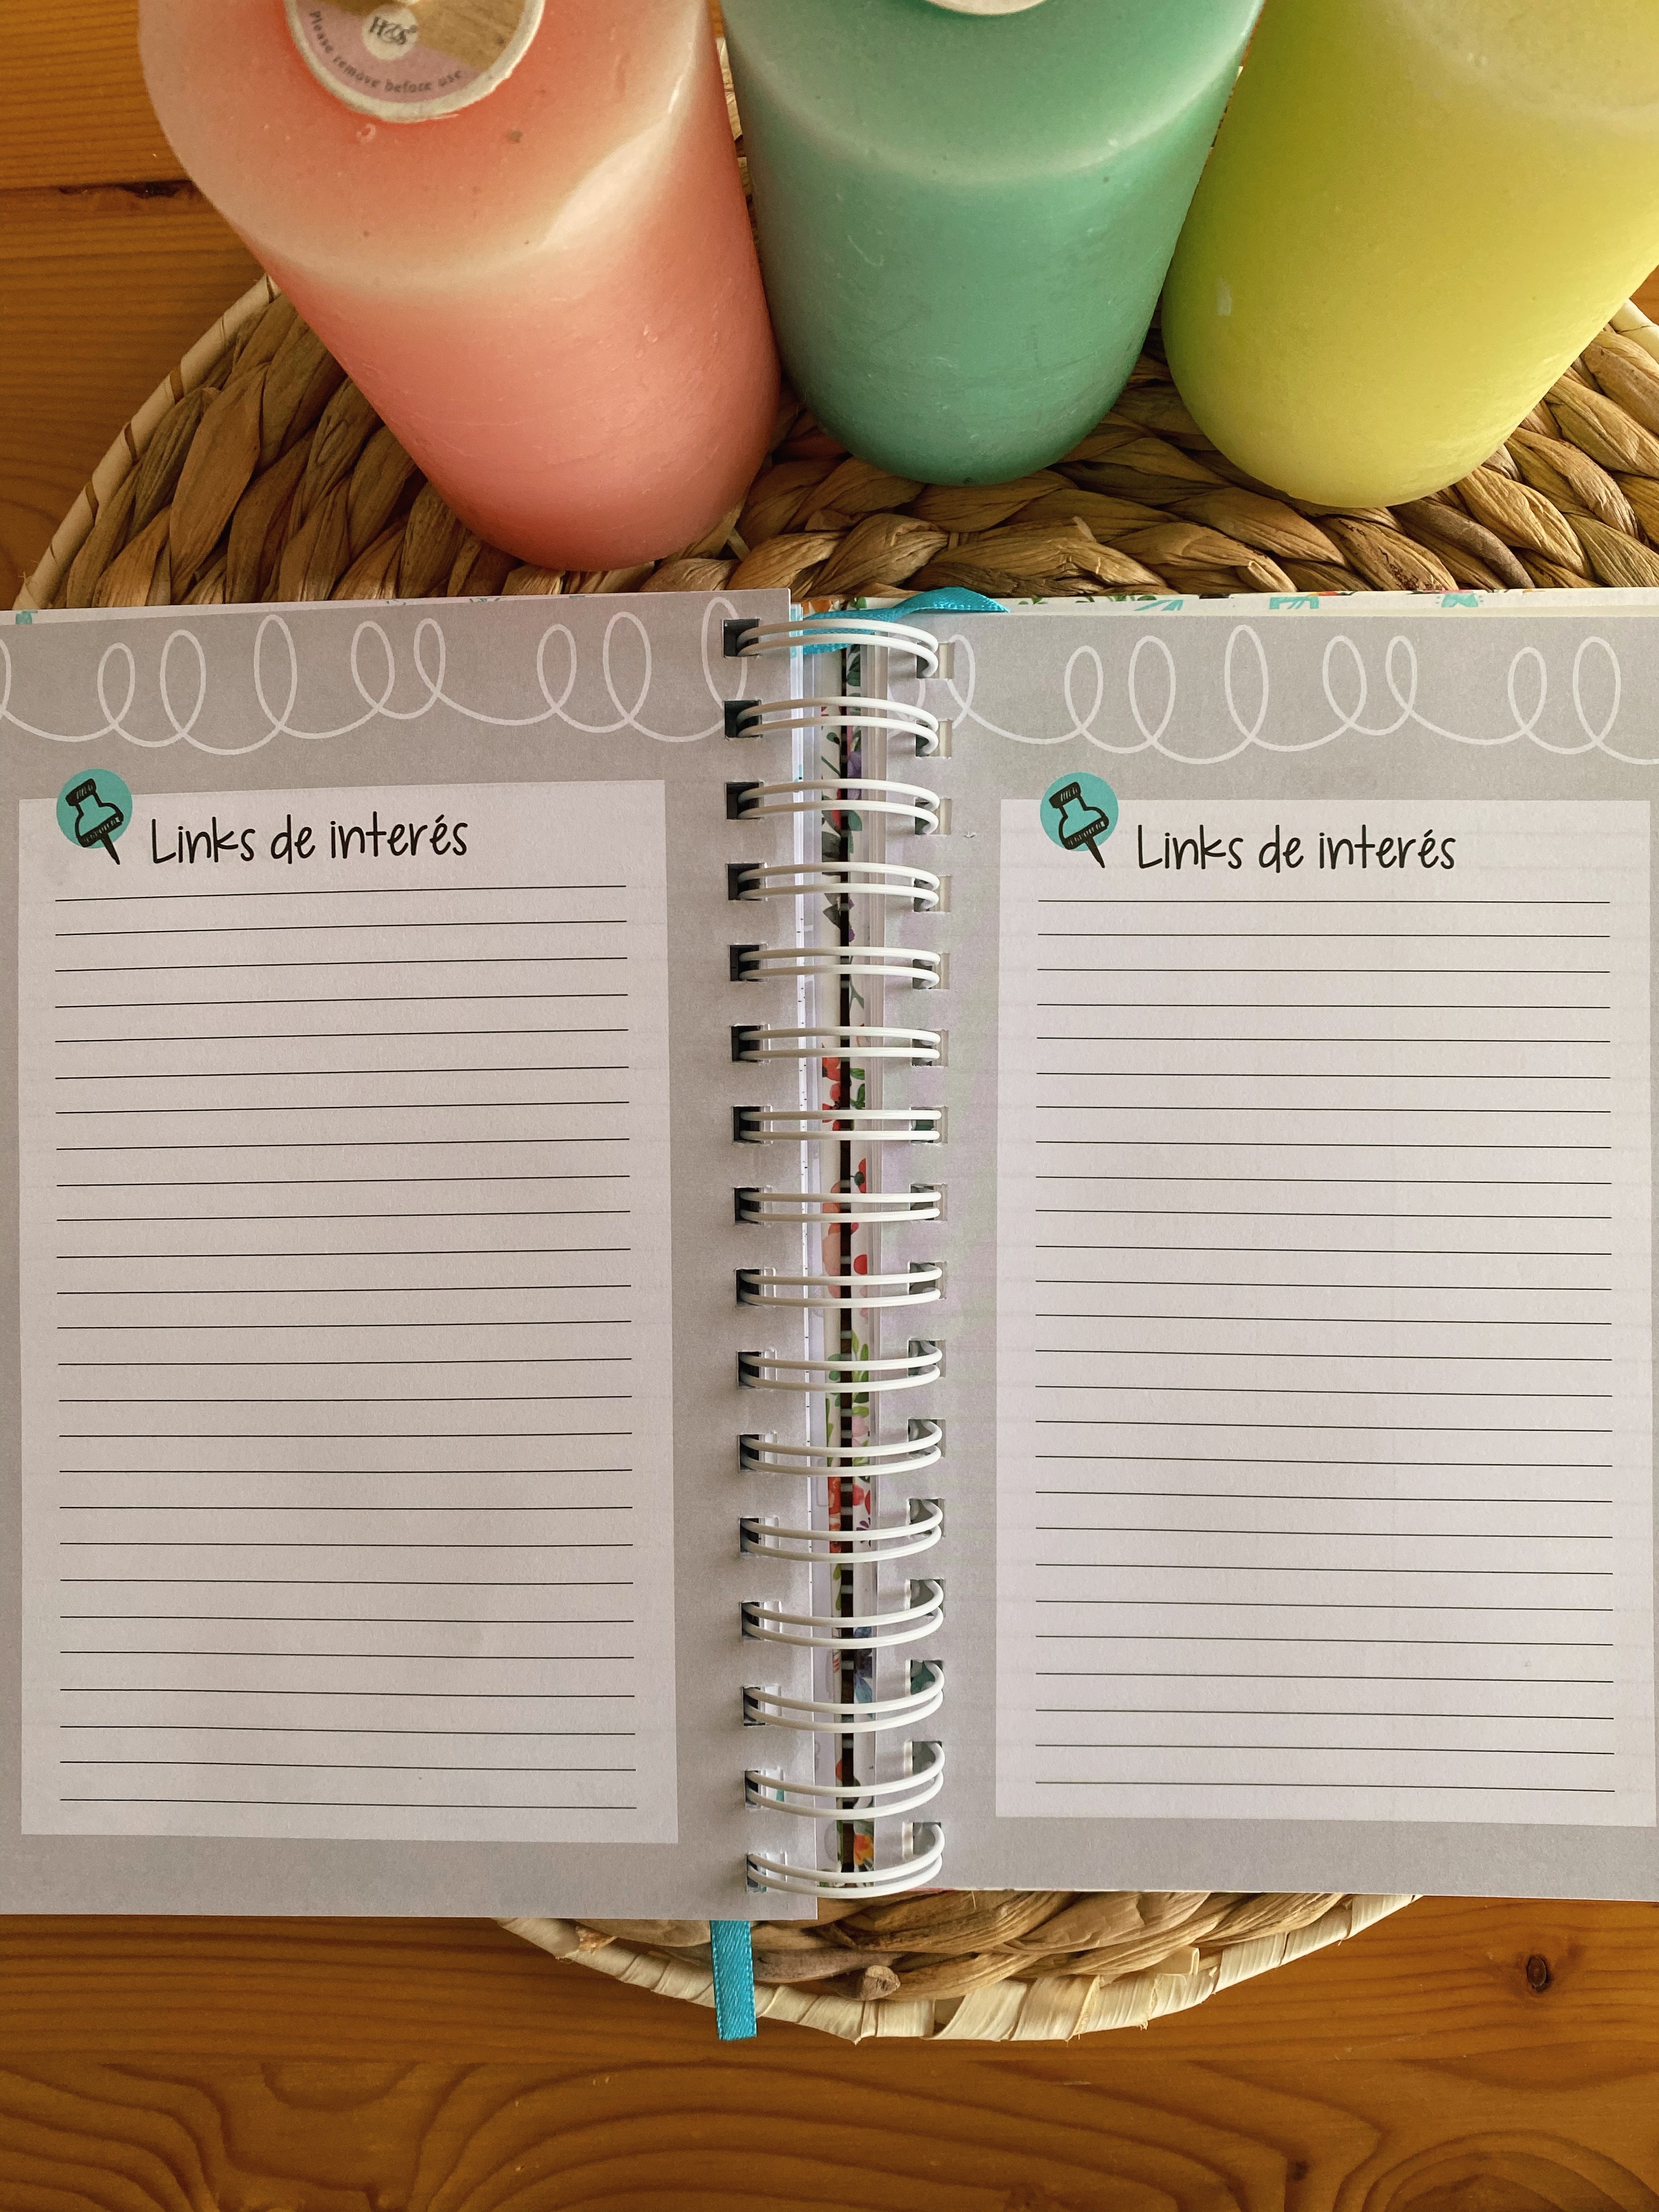 H&S
Please remove before use
Links de interés
Links de interés